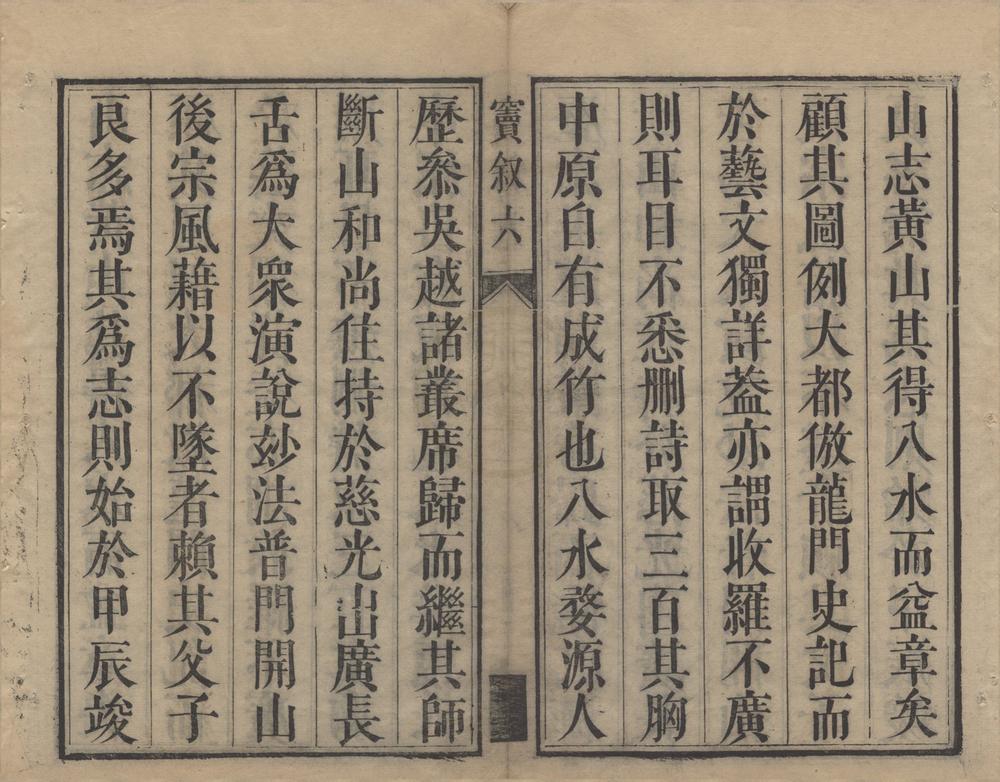 山志黃山其得八水而益章矣
顧其圖例大都倣龍門史記而
於藝文獨詳葢亦謂收羅不廣
則耳目不悉刪詩取三百其胸
中原自有成竹也八水婺源人
竇叙 六
歷叅吳越諸叢席歸而繼其師
斷山和尚住持於慈光出廣長
舌爲大衆演說玅法普門開山
後宗風藉以不墜者賴其父子
良多焉其爲志則始於甲辰竣